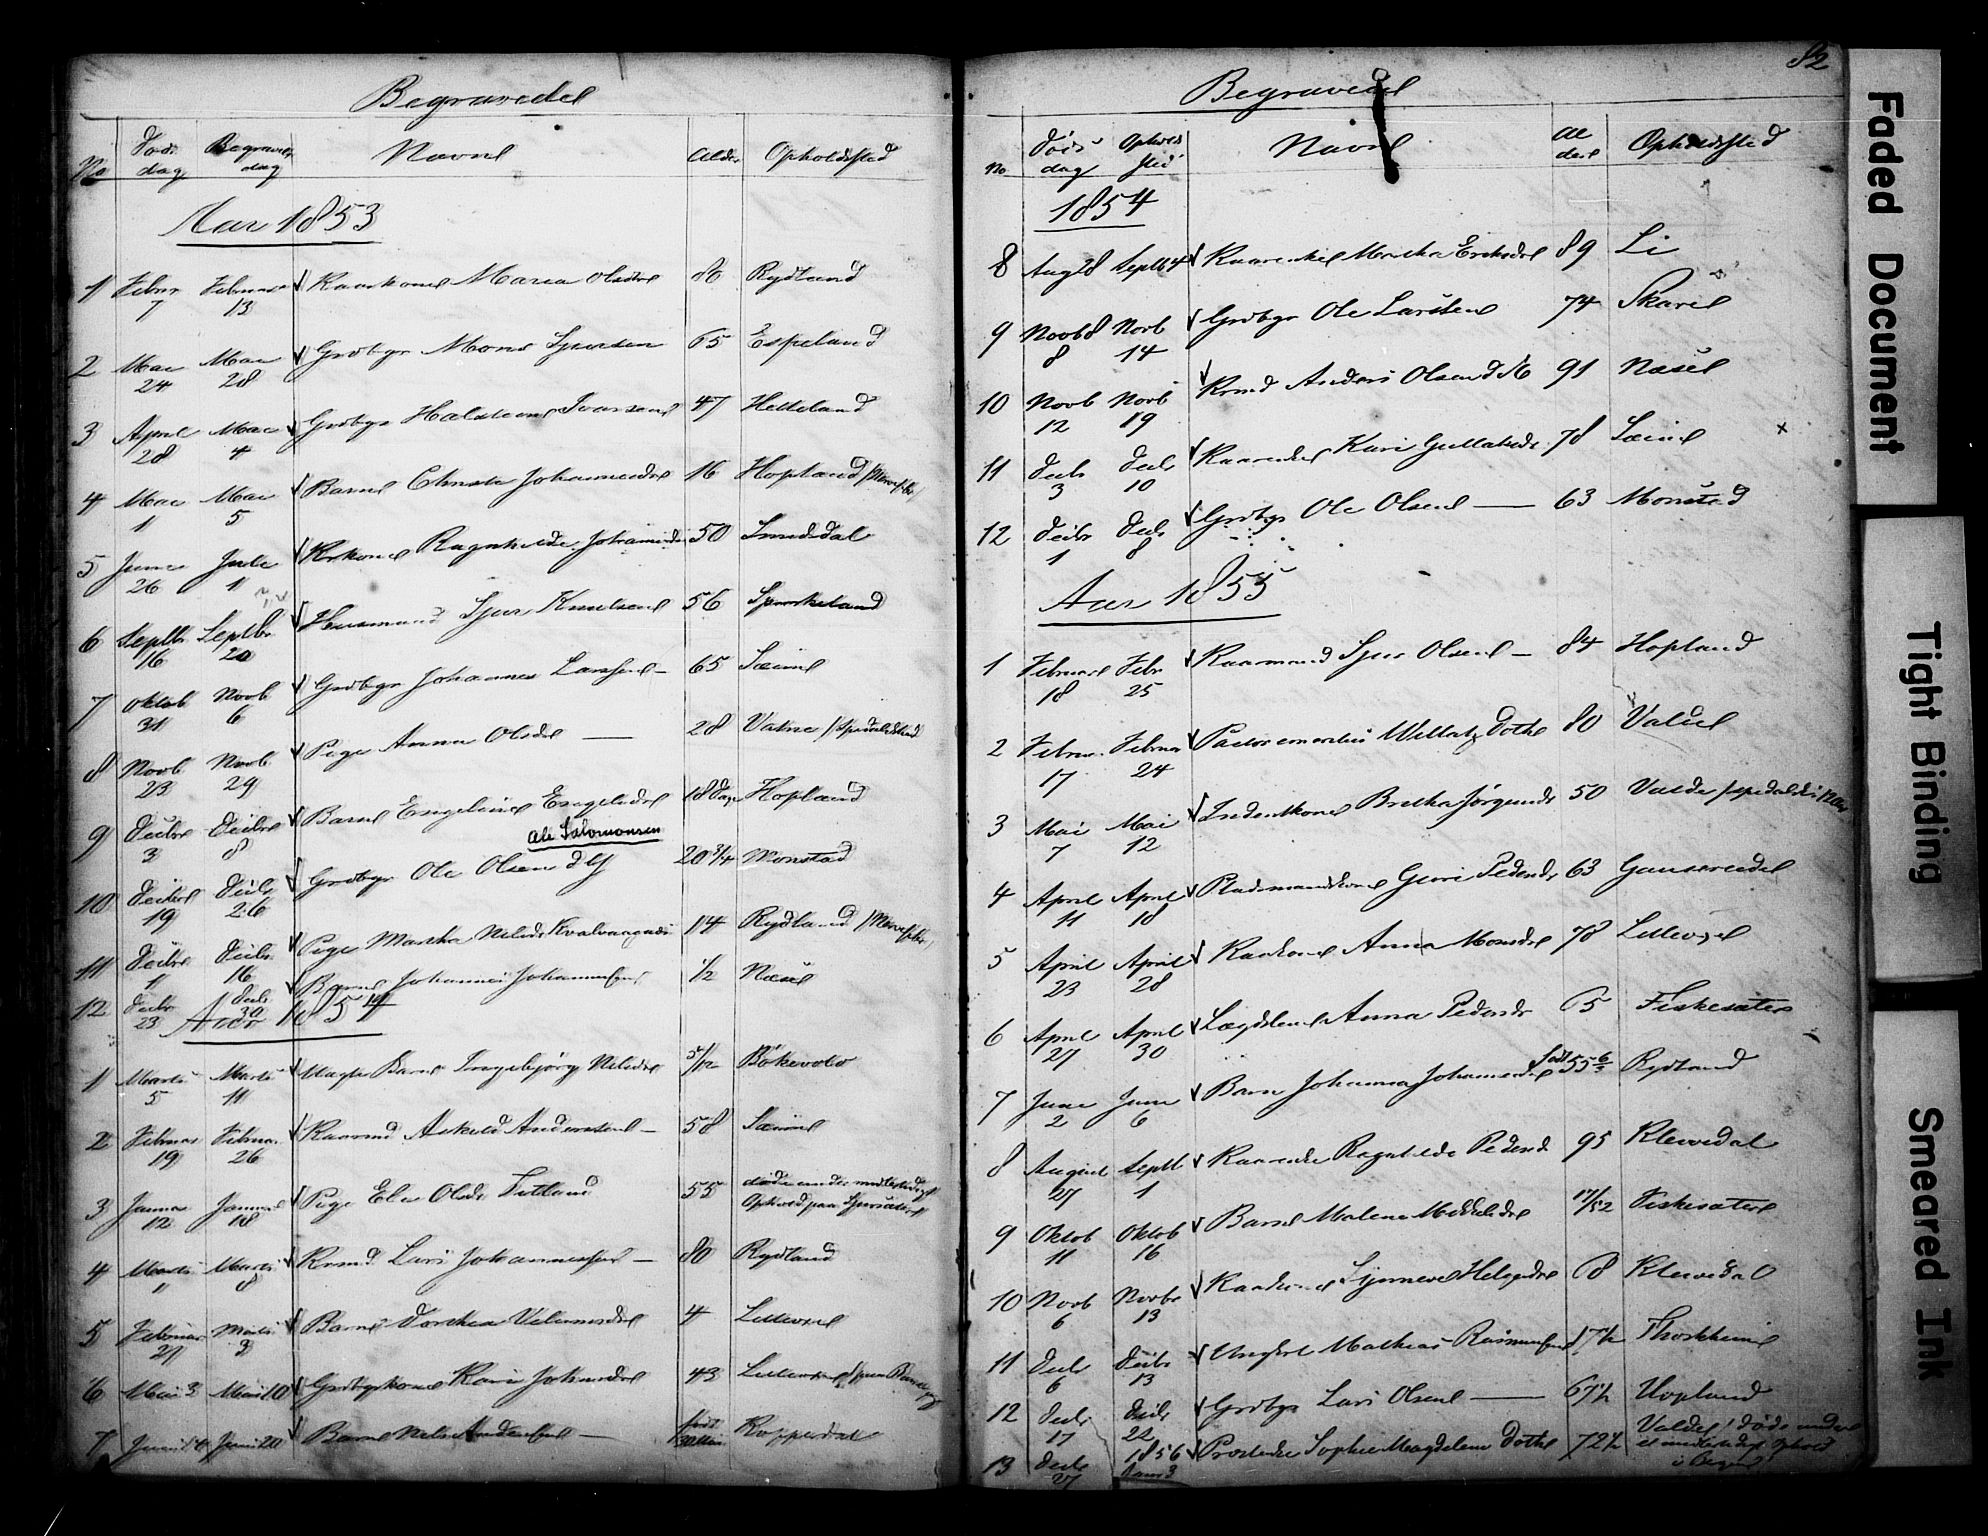 Begravede
No Døds dag Begravels dag Navne Alder Opholdssted
Aar 1853
1 Febr 7 Februar 13 Kaarkone Maria Olsdtr 86 Rydland
2 Mai 24 Mai 28 Grdbgr Mons Sjursen 65 Espeland
3 April 28 Mai 4 Grdbgr Halsteen Ivarsen 47 Helleland
4 Mai 1 Mai 5 Barn Christi Johannesdr 16 Hopland
5 Juni 26 Juli 1 Kone Ragnhilde Johannesdr 50 Smedsdal
6 Septbr 16 Septbr 20 Huusmand Sjur Knutsen 56
7 Oktob 31 Novb 6 Grdbgr Johannes Larssen 65 Sæim
8 Novb 23 Novb 29 Pige Anna Olsdr — 28 Vatne / Spedalskhed
9 Decbr 3 Decbr 8 Barn Engeline Engelsdr 18 Dage Hopland
Ole Salomonsen
10 Decbr 19 Decbr 26 Grdbgr Ole Olsen d.y. 20 3/4 Monstad
11 Decbr 11 Decbr 16 Pige Martha Nilsdr Kvalvaagnæs 14 Rydland / Nervefeber
12 Decbr 23 Decb 30 Barn Johannes Johannessen 1/2 Næse
Aar 1854
1 Marts 5 Marts 11 Uægte Barn Ingebjørg Nilsdr 5/12 Bøkevold
2 Februar 19 Februar 26 Kaarmd Askild Anderssen — 58 Sæim
3 Januar 12 Januar 18 Pige Eli Olsdr Titland 55 døde under midlertidigt Ophold paa
4 Marts 1 Marts 8 Kmd Lars Johannessen — 80 Rydland
5 Februar 27 Marts 3 Barn Dorthea Villumsdr 4 Lilleoxe
6 Mai 3 Mai 10 Grdbgrkone Kari Johnsdr 43 Lilleoxe
7 Juni 14 Juni 20 Barn Nils Andersen — født Koppedal
82
Begravede
No Døds dag Opholds sted Navne Alder Opholdssted
1854
8 Aug 28 Septb 4 Kaarenke Martha Eriksdr 89 Li
9 Novb 8 8 Novb 14 Grdbgr Ole Larsen 74 Skare
10 Novb 12 Novb 19 Kmd Anders Olsen 91 Næse
11 Decb 3 Decb 10 Kaarenke Kari Gullaksdr 78 Sæim x
12 Decbr 1 Decb 8 Grdbgr Ole Olsen — 63 Monstad
Aar 1855
1 Februar 18 Febr 25 Kaarmand Sjur Olsen — 84 Hopland
2 Februar 17 Februar 24 Pastor emeritus Willatz Dothe 80 Valde
3 Mai 7 Mai 12 Inderstkone Brethe Jørgensdr 50 Valde / spedalsk i 12 Aar
4 April 11 April 18 Pladsmandskone Guri Pedersdr 63
5 April 23 April 28 Kaarkone Anna Monsdr 78 Lilleoxe
6 April 27 April 30 Lægdslem Anna Pedersdr 65 Fiskesæter
7 Juni 2 Juni 6 Barn Johanna Johannesdr født 55 Rydland
8 August 27 Septb 1 Kaarenke Ragnhilde Pedersd 95 Klevedal
9 Oktob 11 Oktob 16 Barn Malene Mikkelsdr 17/52 Fiskesæter
10 Novb 6 Novbr 13 Kaarkone Synneve Helgesdr 68 Klevedal
11 Decb 6 Decbr 13 Ungkrl Mathias Rasmussen 17 1/2 Thorsheim
12 Decb 17 Decbr 22 Grdbgr Lars Olsen — 67 1/2 Hopland
13 Decb 27 1856 Janr 3 Præsteenke Sophie Magdelene Dothe 72 1/2 Valde / Døde under et midlertidigt Ophold i Bergen
Faded Document
Tight Binding
Smeared Ink